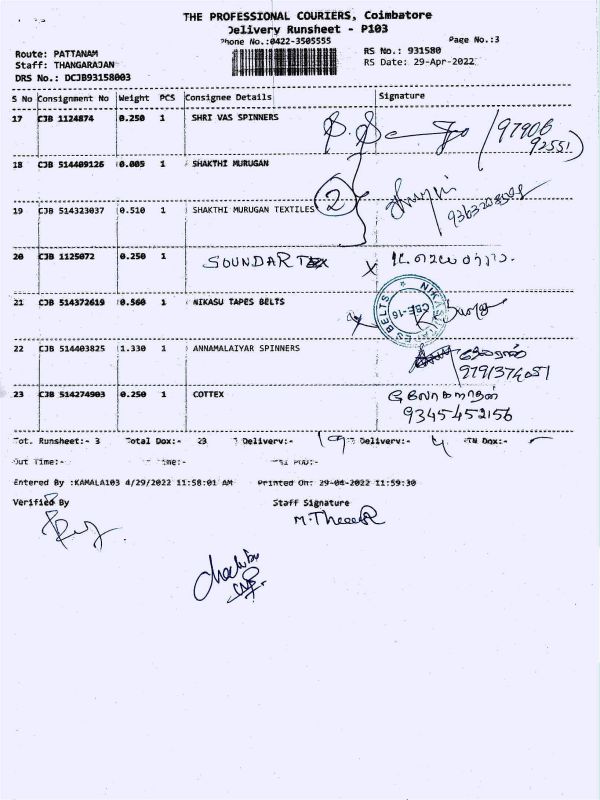 THE PROFESSIONAL COURIERS, Coimbatore
Delivery Runsheet - P103
Phone No.:0422-3505555
Page No.:3
Route: PATTANAM
RS No.: 931580
Staff: THANGARAJAN
RS Date: 29-Apr-2022
DRS No.: DCJB93158003
S No Consignment No Weight PCS Consignee Details Signature
17 CJB 1124874 0.250 1 SHRI VAS SPINNERS 97906
92551
18 CJB 514409126 0.005 1 SHAKTHI MURUGAN
2
19 CJB 514323037 0.510 1 SHAKTHI MURUGAN TEXTILES
20 CJB 1125072 0.250 1 SOUNDAR TEX X
21 CJB 514372619 0.560 1 NIKASU TAPES BELTS
NIKASU TAPES BELTS CBE-16
22 CJB 514403825 1.330 1 ANNAMALAIYAR SPINNERS
9791374051
23 CJB 514274903 0.250 1 COTTEX
9345452156
Tot. Runsheet:- 3 Total Dox:- 23 Delivery:- 19 Delivery:- 4 Dox:-
Out Time:-
Entered By :KAMALA103 4/29/2022 11:58:01 AM Printed On: 29-04-2022 11:59:30
Verified By Staff Signature